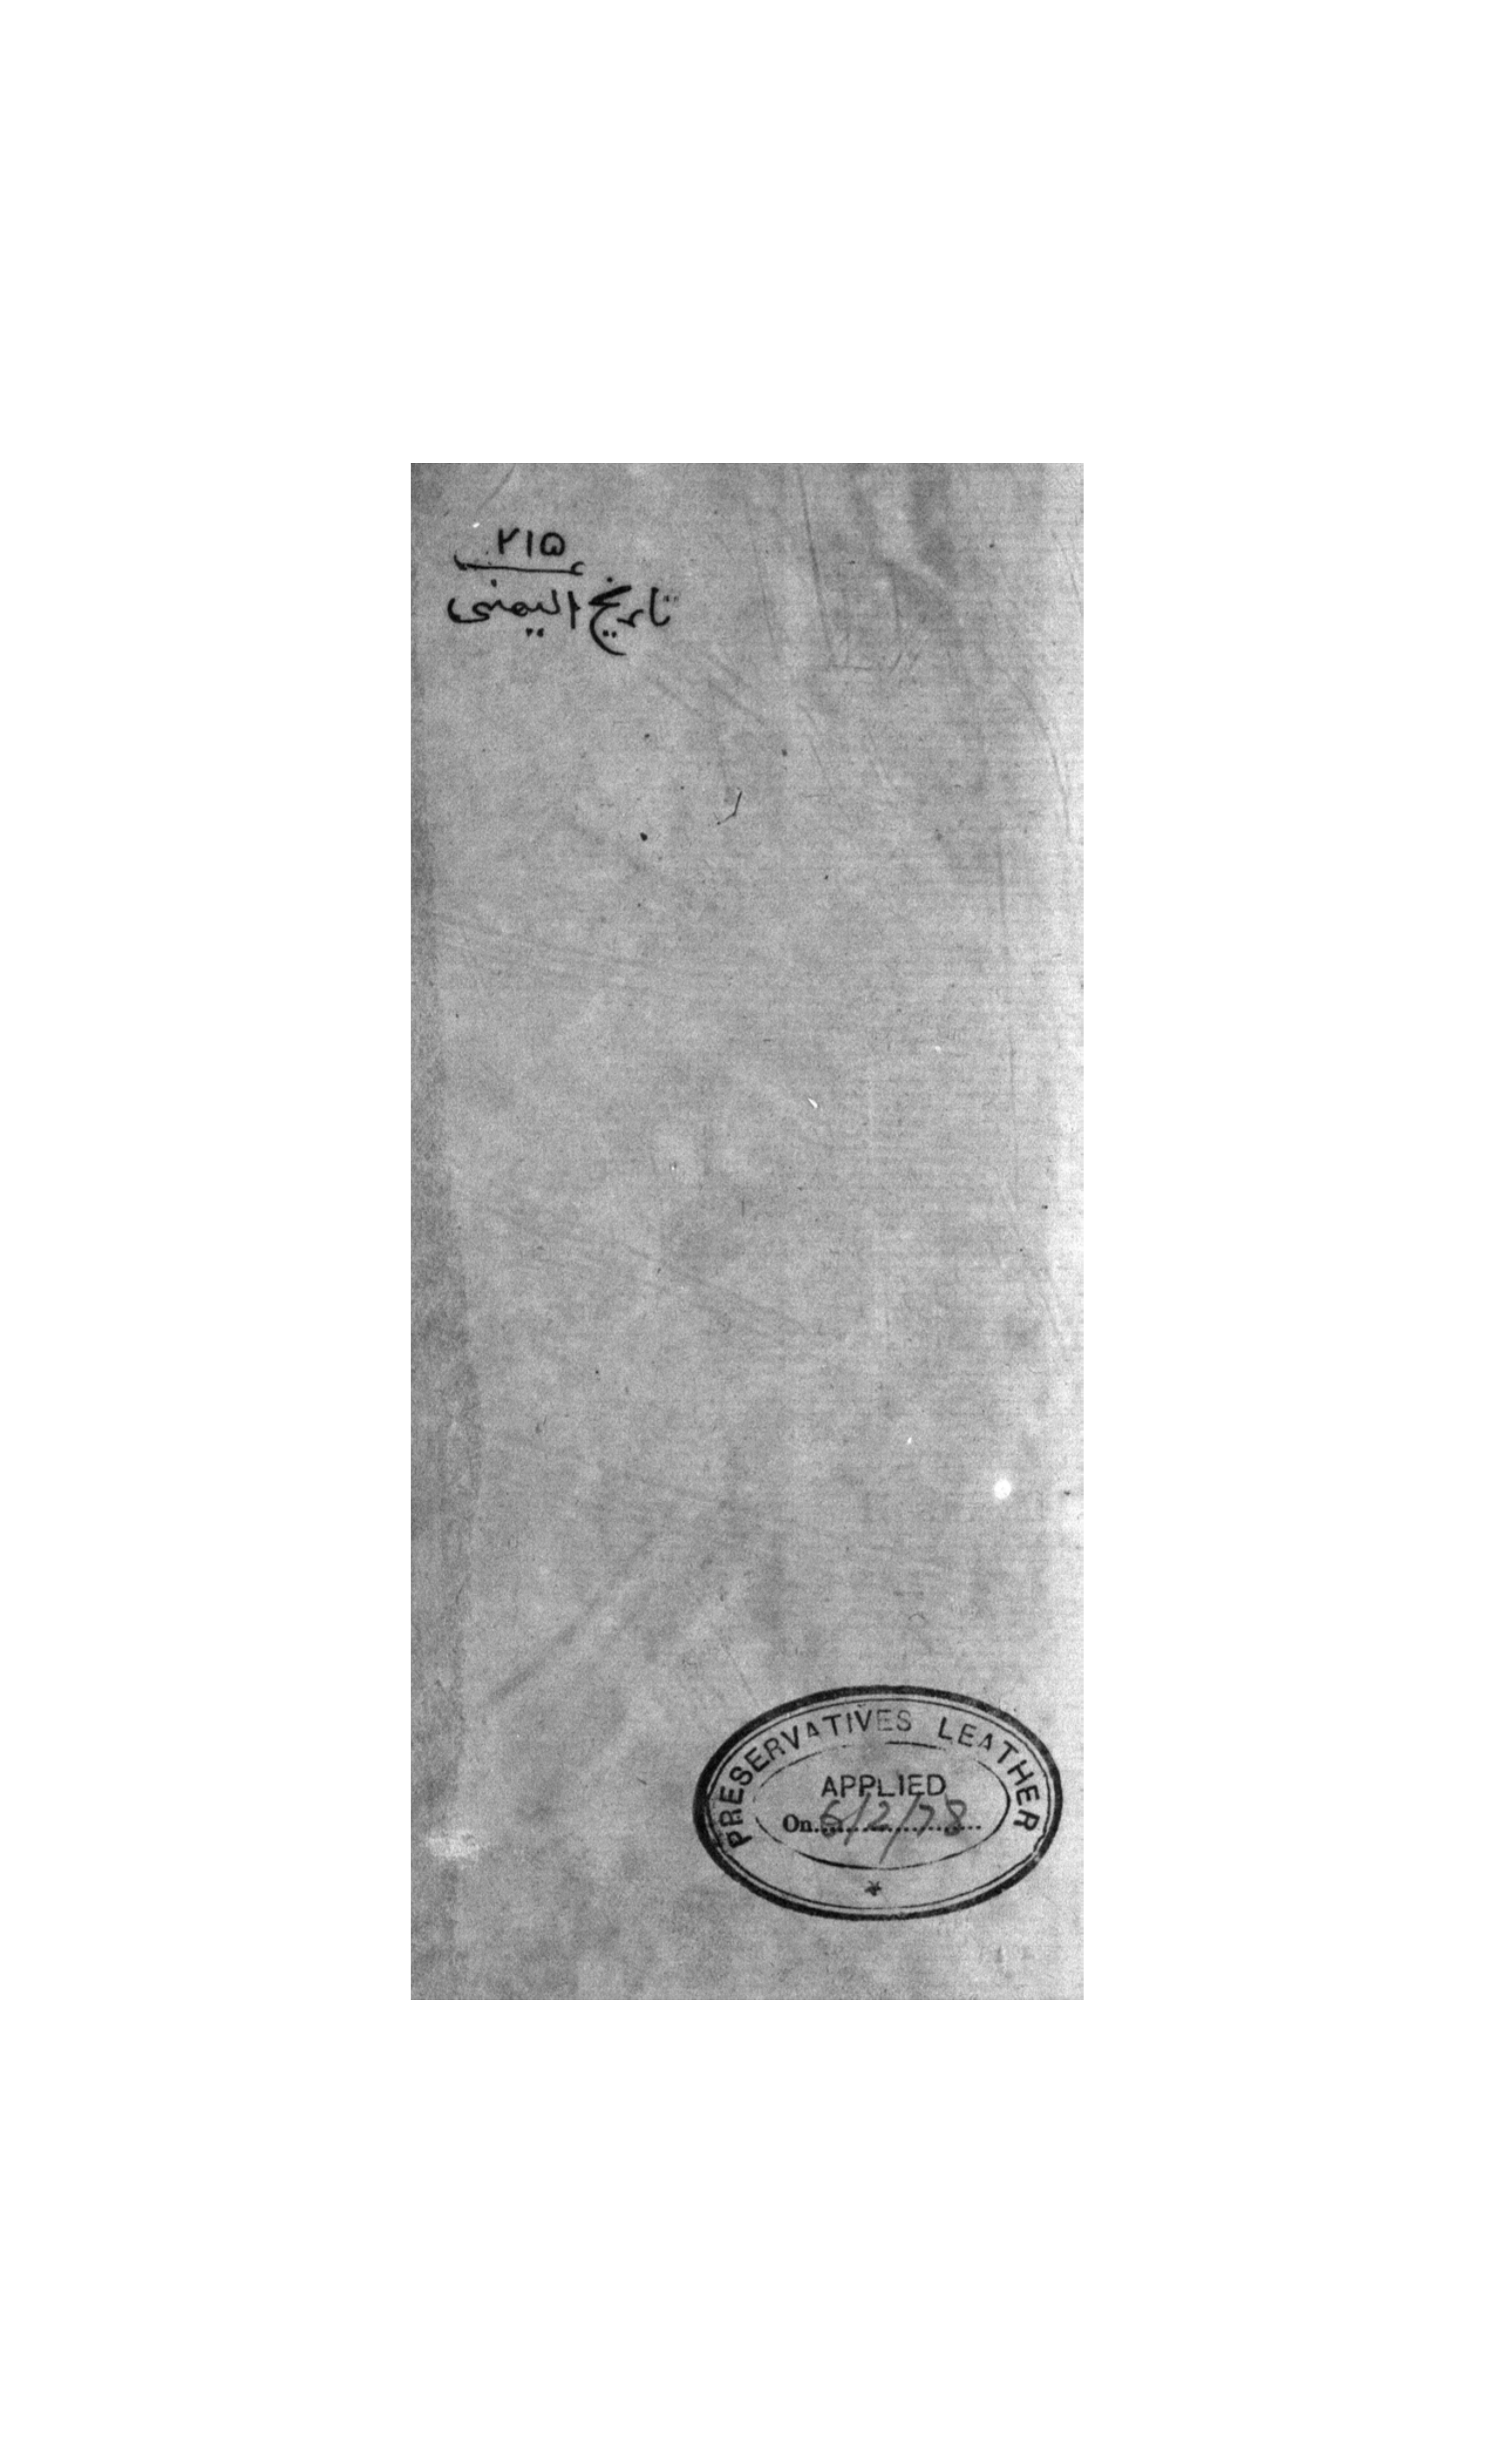 ۲۱۵
تاريخ اليمنى
PRESERVATIVES LEATHER
APPLIED
On 6/2/78